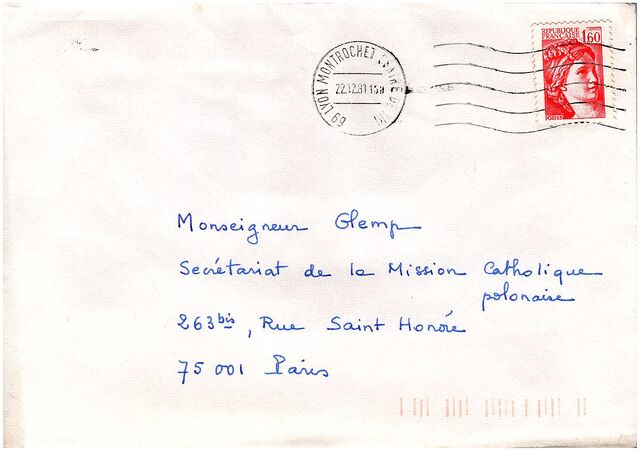 REPUBLIQUE
FRANCAISE 1,60
POSTES
69 LYON MONTROCHET
22.12.81 15H
Monseigneur Glemp
Secrétariat de la Mission Catholique
polonaise
263 bis, Rue Saint Honoré
75 001 Paris